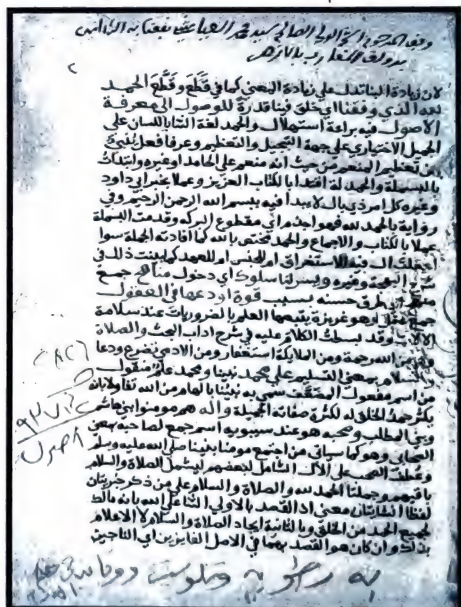 لان زيادة البنا تدل على زيادة المعنى كما في قَطَعَ وقَطَّعَ الحمد
لله الذي وفقنا اي خلق فينا قدرة للوصول الى معرفة
الاصول فيه براعة استهلال والحمد لغة الثنا باللسان على
الجميل الاختياري على جهة التبجيل والتعظيم وعرفا فعل ينبئ
عن تعظيم المنعم من حيث انه منعم على الحامد او غيره وابتدات
بالبسملة والحمدلة اقتدا بالكتاب العزيز وعملا بخبر ابي داود
وغيره كل امر ذي بال لا يبدا فيه ببسم الله الرحمن الرحيم وفي
رواية بالحمد لله فهو اجذم اي مقطوع البركة وقدمت البسملة
عملا بالكتاب والاجماع والحمد مختص بالله كما افادته الجملة سوا
اجعلت ال فيه للاستغراق ام للجنس ام للعهد كما بينت ذلك في
شرح البهجة وغيره ويسر لنا سلوك اي دخول مناهج جمع
منهج اي طرق حسنة بسبب قوة اودعها في العقول
جمع عقل وهو غريزة يتبعها العلم بالضروريات عند سلامة
الالات وقد بسطت الكلام عليه في شرح اداب البحث والصلاة
وهي من الله رحمة ومن الملايكة استغفار ومن الادمي تضرع ودعا
والسلام بمعنى التسليم على محمد نبينا ومحمد علم منقول
من اسم مفعول المضعف سمي به نبينا بالهام من الله تفاولا بانه
يكثر حمد الخلق له لكثرة صفاته الجميلة واله هم مومنوا بني هاشم
وبني المطلب وصحبه هو عند سيبويه اسم جمع لصاحبه بمعنى
الصحابي وهو كما سياتي من اجتمع مومنا بنبينا صلى الله عليه وسلم
وعطف الصحب على الال الشامل لبعضهم ليشمل الصلاة والسلام
باقيهم وجملتا الحمد لله والصلاة والسلام على من ذكر خبريتان
لفظا انشائيتان معنى اذ القصد بالاولى الثنا على الله بانه مالك
لجميع الحمد من الخلق وبالثانية ايجاد الصلاة والسلام لا الاعلام
بذلك وان كان هو القصد بهما في الاصل الفايزين اي الناجين